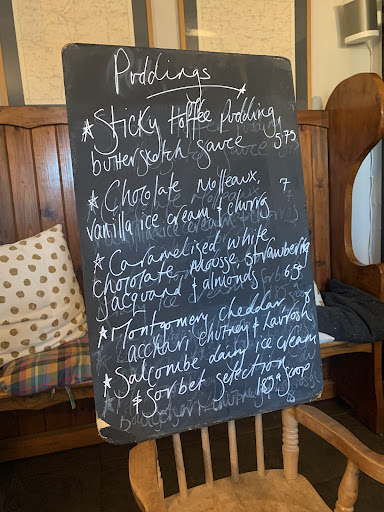 Puddings
* Sticky toffee Pudding,
butterscotch sauce 5.75
* Chocolate Moelleaux, 7
vanilla ice cream & churros
* Caramelised white
chocolate mousse, strawberries
& almonds 6.50
* Montgomery cheddar, 8
chutney & lavosh
* Salcombe dairy ice cream
& sorbet selection scoop